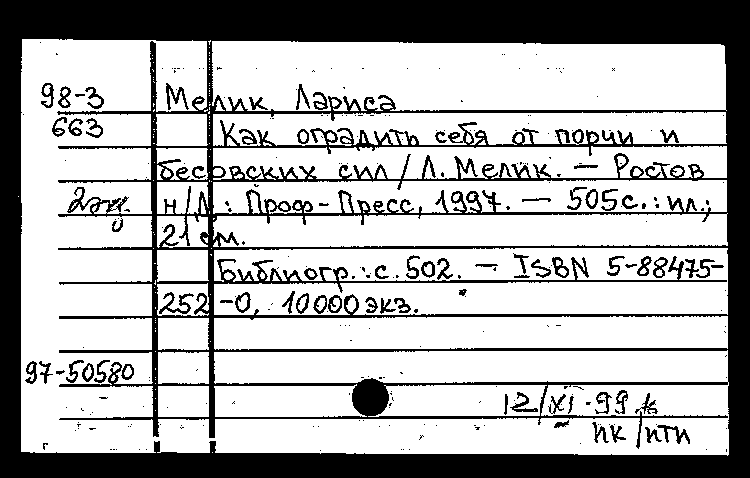 98-3 Мелик, Лариса
663 Как оградить себя от порчи и
бесовских сил / Л. Мелик. — Ростов
2экз н/Д.: Проф-Пресс, 1997. — 505с.: ил.;
21 см.
Библиогр.: с. 502. — ISBN 5-88475-
252-0, 10000 экз.
97-50580
12/XI-99
пк/нти